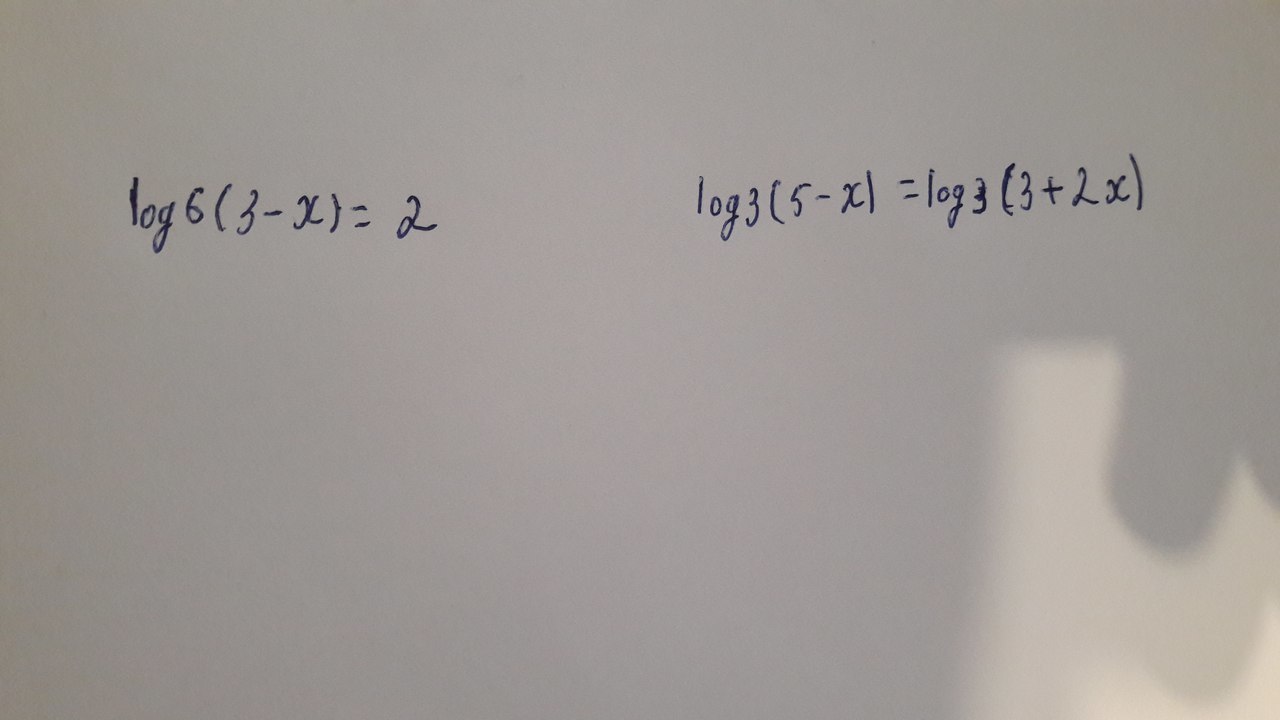 log6(3-x)= 2
log3(5-x) =log3(3+2x)